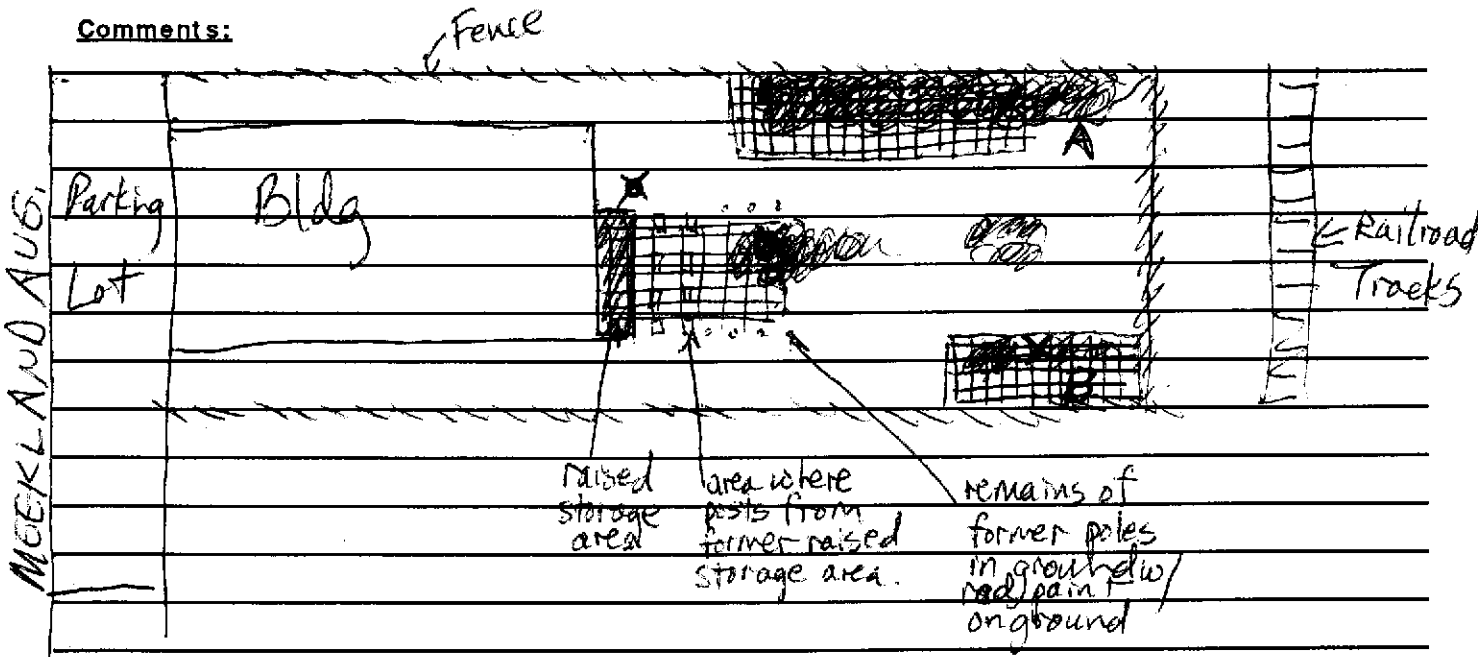 Comments:
Fence
A
Parking
Lot
Bldg
Railroad
Tracks
B
MEEKLAND AUG.
raised
storage
area
area where
posts from
former raised
storage area.
remains of
former poles
in ground w/
red paint
on ground